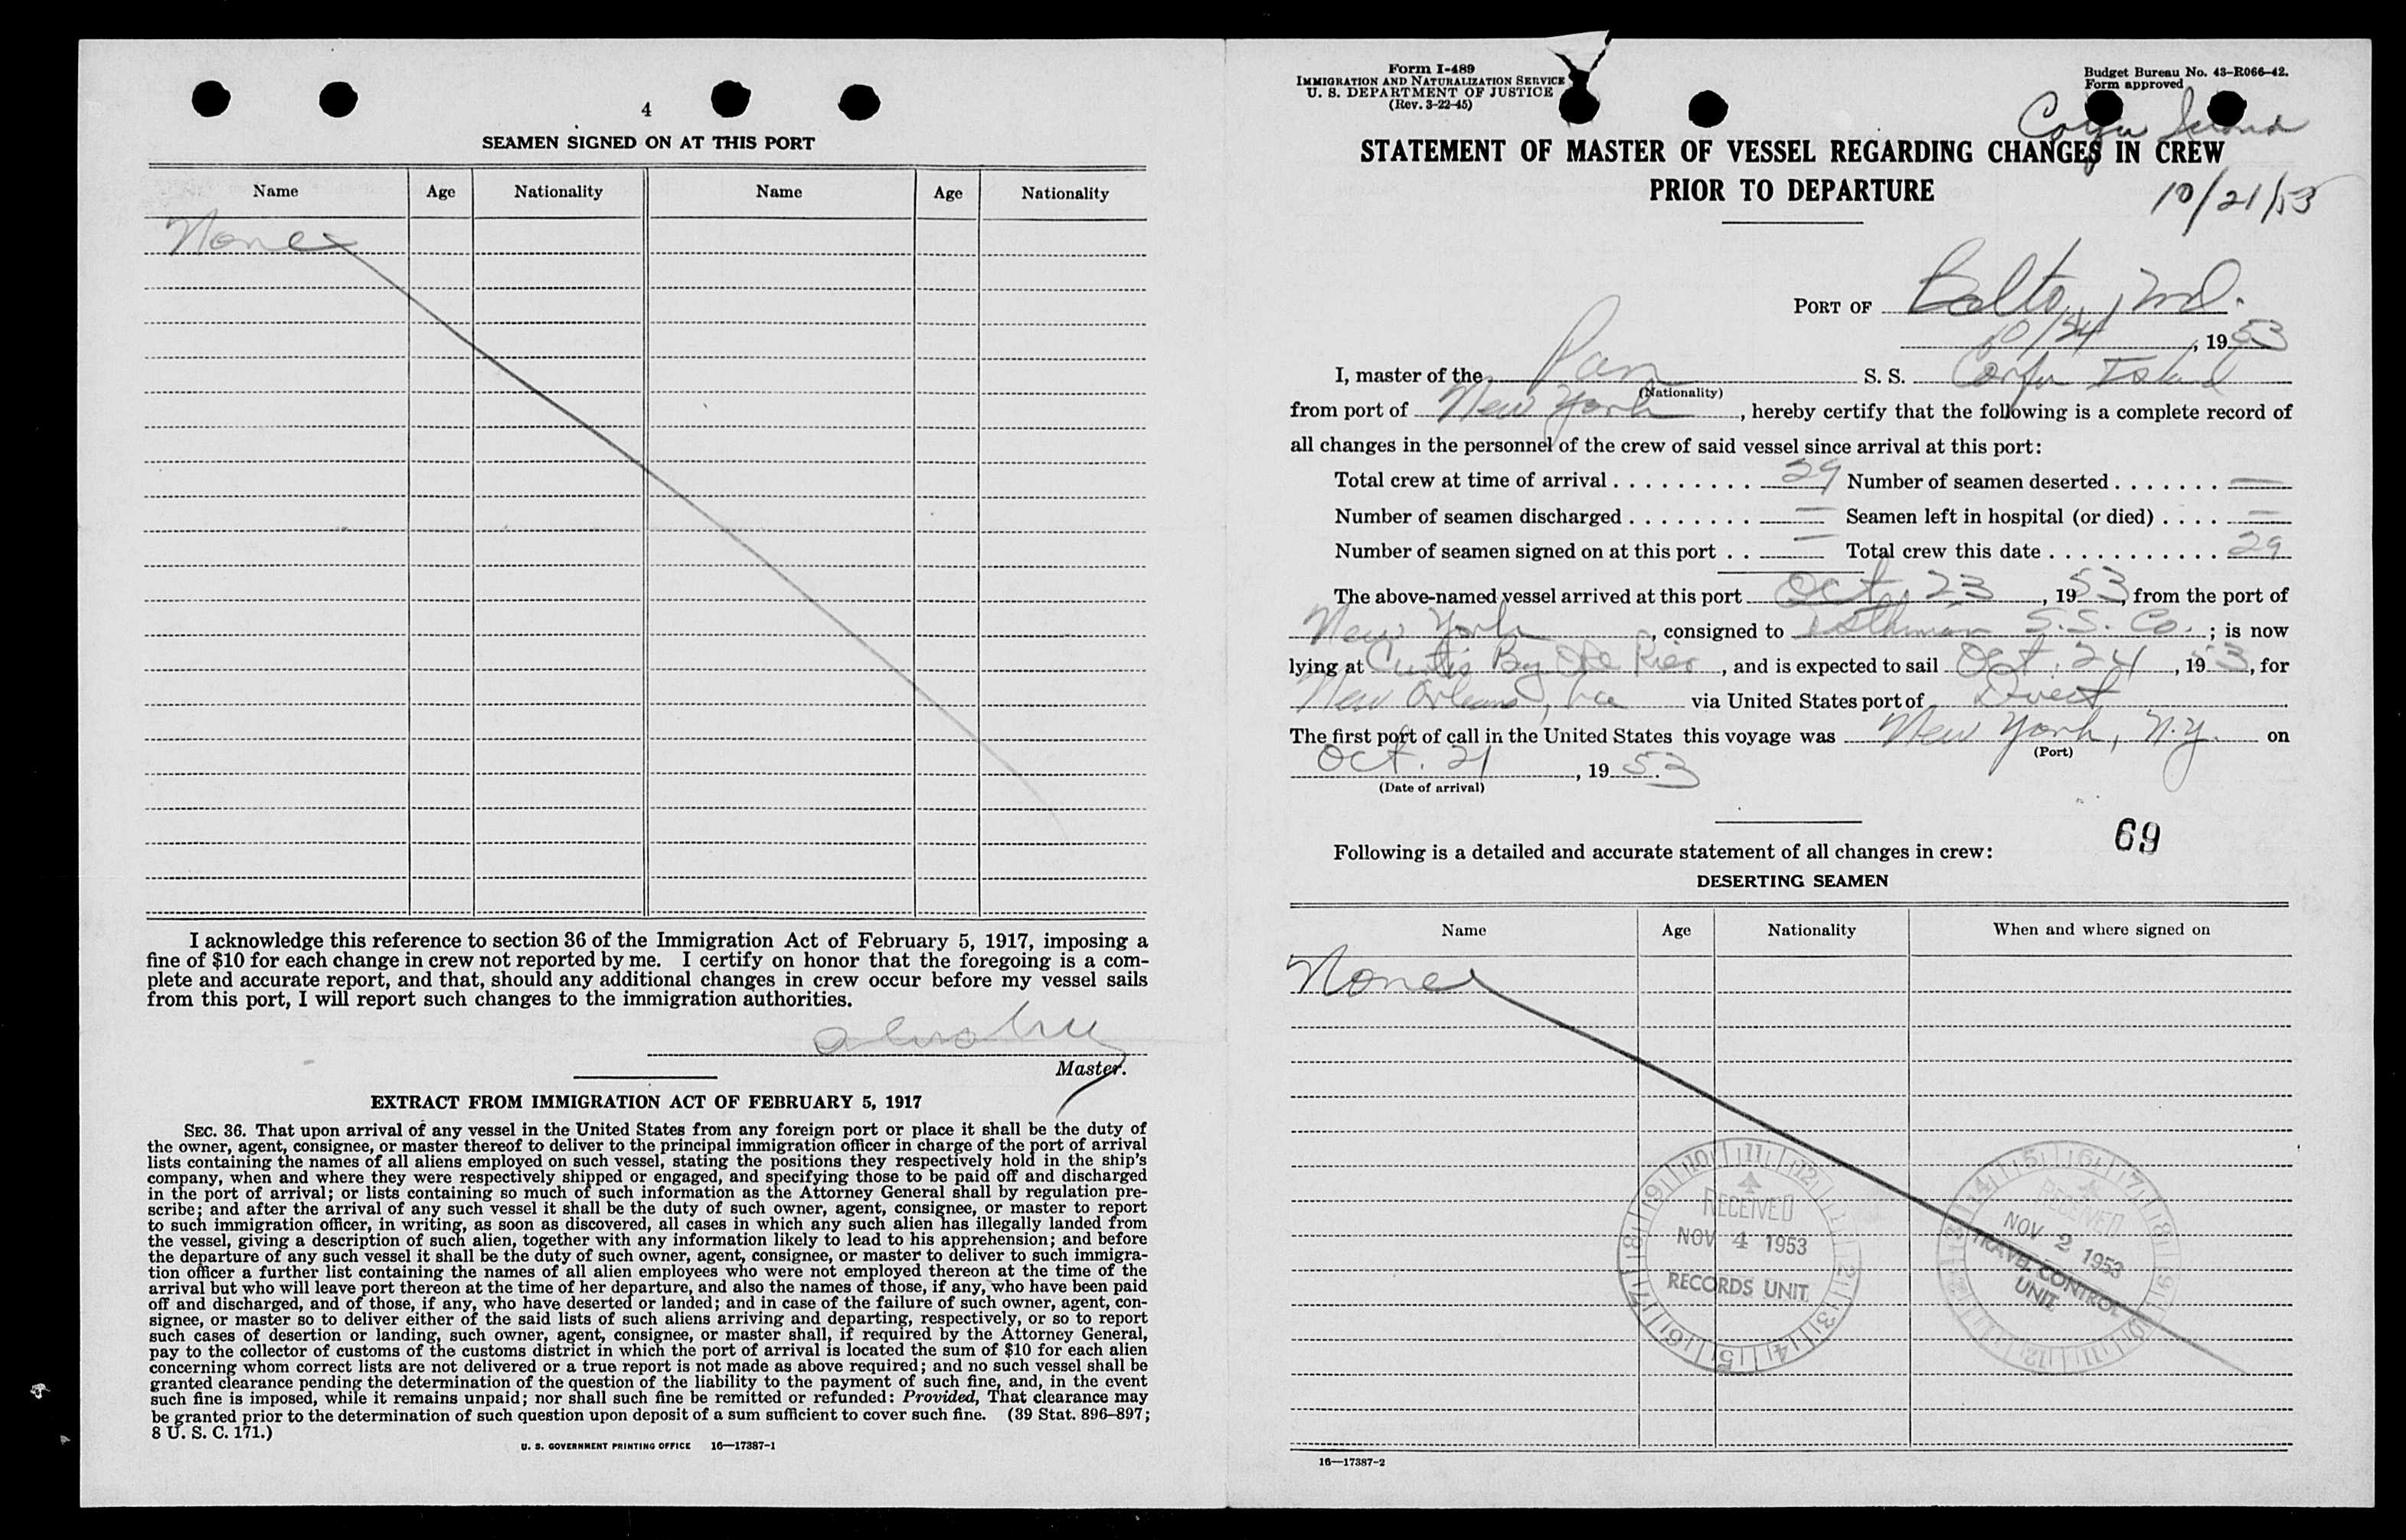 4
SEAMEN SIGNED ON AT THIS PORT
Name Age Nationality Name Age Nationality
None
I acknowledge this reference to section 36 of the Immigration Act of February 5, 1917, imposing a
fine of $10 for each change in crew not reported by me. I certify on honor that the foregoing is a com-
plete and accurate report, and that, should any additional changes in crew occur before my vessel sails
from this port, I will report such changes to the immigration authorities.
Master.
EXTRACT FROM IMMIGRATION ACT OF FEBRUARY 5, 1917
SEC. 36. That upon arrival of any vessel in the United States from any foreign port or place it shall be the duty of
the owner, agent, consignee, or master thereof to deliver to the principal immigration officer in charge of the port of arrival
lists containing the names of all aliens employed on such vessel, stating the positions they respectively hold in the ship's
company, when and where they were respectively shipped or engaged, and specifying those to be paid off and discharged
in the port of arrival; or lists containing so much of such information as the Attorney General shall by regulation pre-
scribe; and after the arrival of any such vessel it shall be the duty of such owner, agent, consignee, or master to report
to such immigration officer, in writing, as soon as discovered, all cases in which any such alien has illegally landed from
the vessel, giving a description of such alien, together with any information likely to lead to his apprehension; and before
the departure of any such vessel it shall be the duty of such owner, agent, consignee, or master to deliver to such immigra-
tion officer a further list containing the names of all alien employees who were not employed thereon at the time of the
arrival but who will leave port thereon at the time of her departure, and also the names of those, if any, who have been paid
off and discharged, and of those, if any, who have deserted or landed; and in case of the failure of such owner, agent, con-
signee, or master so to deliver either of the said lists of such aliens arriving and departing, respectively, or so to report
such cases of desertion or landing, such owner, agent, consignee, or master shall, if required by the Attorney General,
pay to the collector of customs of the customs district in which the port of arrival is located the sum of $10 for each alien
concerning whom correct lists are not delivered or a true report is not made as above required; and no such vessel shall be
granted clearance pending the determination of the question of the liability to the payment of such fine, and, in the event
such fine is imposed, while it remains unpaid; nor shall such fine be remitted or refunded: Provided, That clearance may
be granted prior to the determination of such question upon deposit of a sum sufficient to cover such fine. (39 Stat. 896–897;
8 U. S. C. 171.)
U. S. GOVERNMENT PRINTING OFFICE 16—17387-1
Form I-489
IMMIGRATION AND NATURALIZATION SERVICE
U. S. DEPARTMENT OF JUSTICE
(Rev. 3-22-45)
Budget Bureau No. 43-R066-42.
Form approved
Corfu Island
STATEMENT OF MASTER OF VESSEL REGARDING CHANGES IN CREW
PRIOR TO DEPARTURE
10/21/53
PORT OF Balto, Md.
10/24, 1953
I, master of the Pan S. S. Corfu Island
(Nationality)
from port of New York, hereby certify that the following is a complete record of
all changes in the personnel of the crew of said vessel since arrival at this port:
Total crew at time of arrival . . . . . . . . . . 29 Number of seamen deserted . . . . . . . —
Number of seamen discharged . . . . . . . . — Seamen left in hospital (or died) . . . . —
Number of seamen signed on at this port . . — Total crew this date . . . . . . . . . . . 29
The above-named vessel arrived at this port Oct. 23, 1953, from the port of
New York, consigned to Isthmian S.S. Co.; is now
lying at Curtis Bay Ore Pier, and is expected to sail Oct. 24, 1953, for
New Orleans, La via United States port of Direct
The first port of call in the United States this voyage was New York, N.Y. on
(Port)
Oct. 21, 1953
(Date of arrival)
69
Following is a detailed and accurate statement of all changes in crew:
DESERTING SEAMEN
Name Age Nationality When and where signed on
None
RECEIVED
NOV 4 1953
RECORDS UNIT
RECEIVED
NOV 2 1953
TRAVEL CONTROL
UNIT
16—17387-2